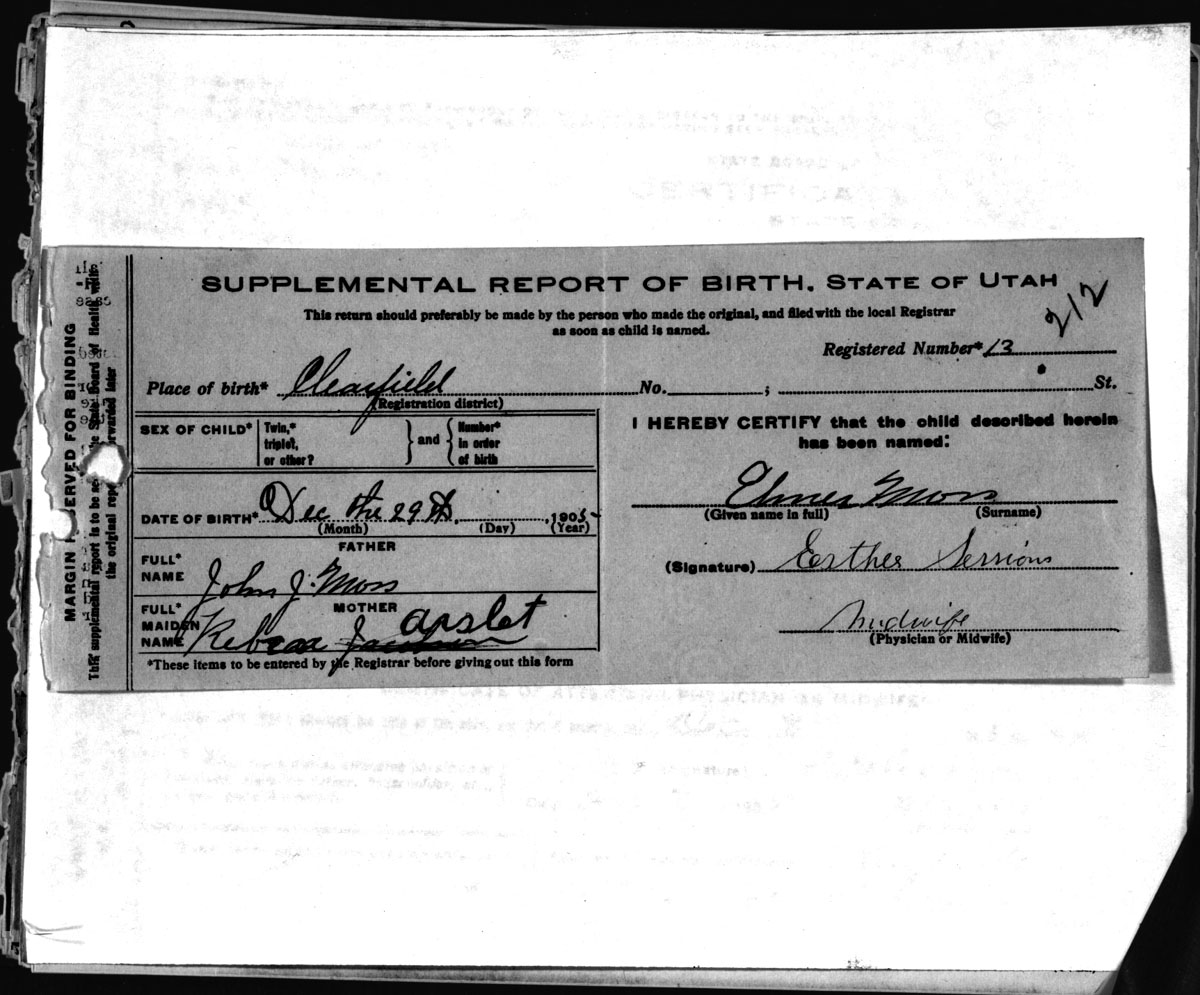 SUPPLEMENTAL REPORT OF BIRTH. STATE OF UTAH
212
This return should preferably be made by the person who made the original, and filed with the local Registrar
as soon as child is named.
Registered Number* 13
Place of birth* Clearfield No. ; St.
(Registration district)
SEX OF CHILD* Twin,* triplet, or other? } and { Number* in order of birth
DATE OF BIRTH* Dec the 29th, 1905
(Month) (Day) (Year)
FATHER
FULL* NAME John J. Moss
MOTHER
FULL* MAIDEN NAME Rebecca arslet
*These items to be entered by the Registrar before giving out this form
I HEREBY CERTIFY that the child described herein
has been named:
Elmer Moss
(Given name in full) (Surname)
(Signature) Eesther Sessions
Midwife
(Physician or Midwife)
MARGIN RESERVED FOR BINDING
This supplemental report is to be the State Board of Health,
the original forwarded later